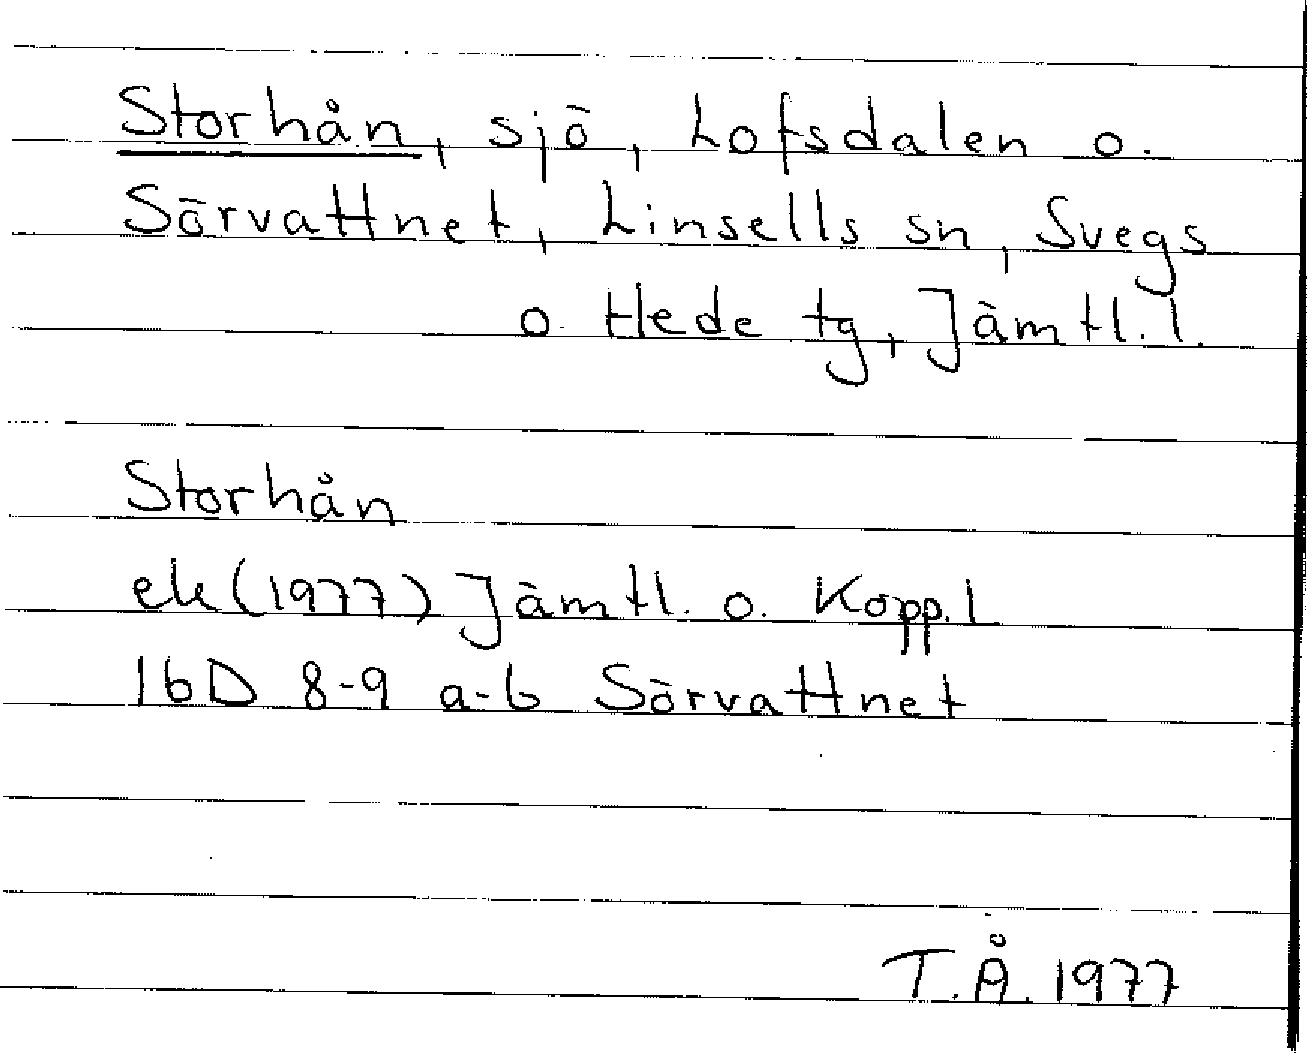 Storhån, sjö, Lofsdalen o.
Sörvattnet, Linsells sn, Svegs
o Hede tg, Jämtl. l.
Storhån
ek (1977) Jämtl. o. Kopp. l
16D 8-9 a-b Sörvattnet
T.Å. 1977